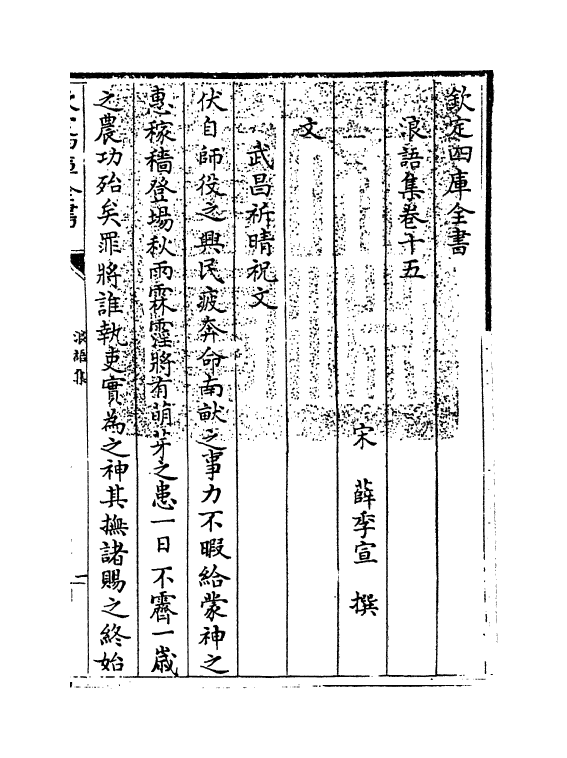 欽定四庫全書
浪語集卷十五
宋 薛季宣 撰
文
武昌祈晴祝文
伏自師役之興民疲奔命南畝之事力不暇給蒙神之
惠稼穡登場秋雨霖霪將有萌芽之患一日不霽一歲
之農功殆矣罪將誰執吏實為之神其撫諸賜之終始
欽定四庫全書
浪語集
一